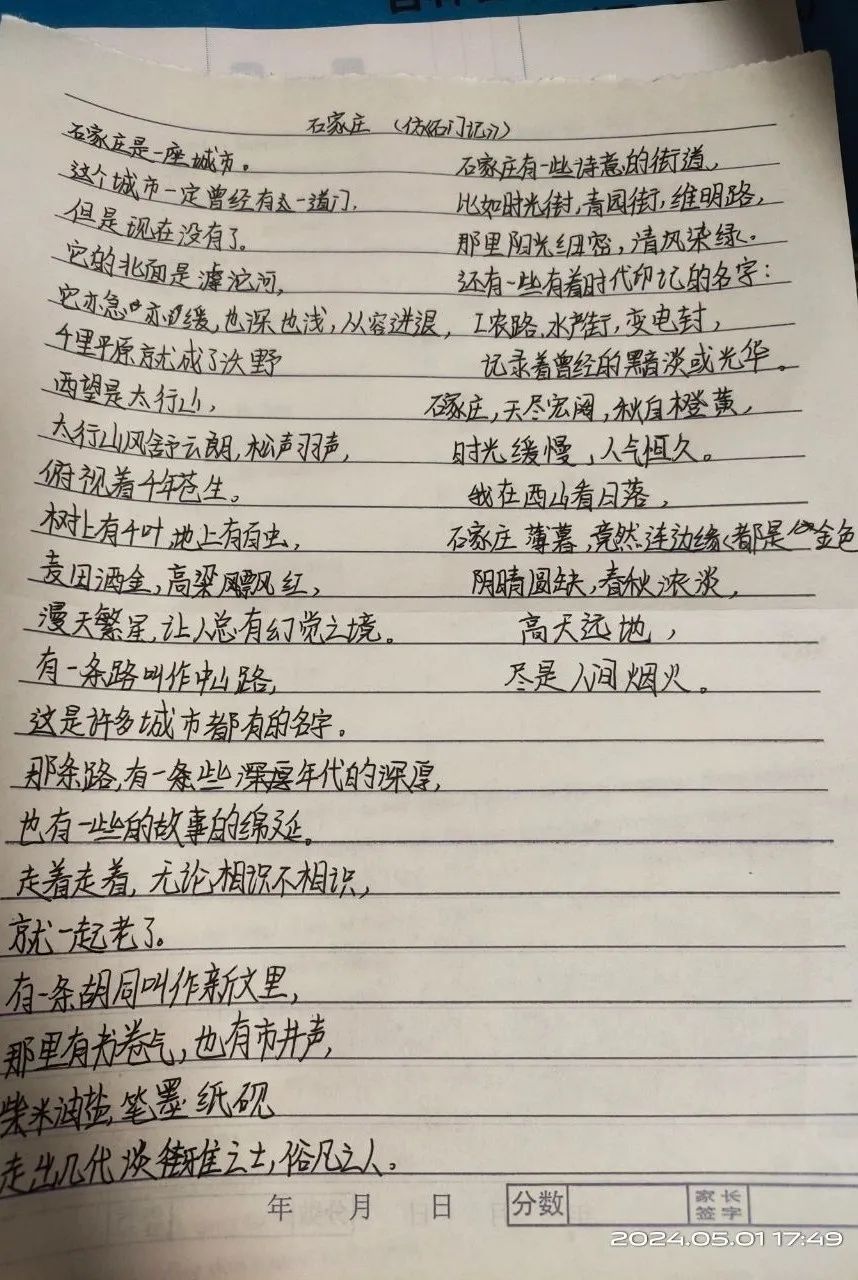 石家庄 (仿《石门记》)
石家庄是一座城市。
这个城市一定曾经有一道门,
但是现在没有了。
它的北面是滹沱河,
它亦急亦缓,也深也浅,从容进退,
千里平原就成了沃野
西望是太行山,
太行山风舒云朗,松声羽声,
俯视着千年苍生。
树上有千叶,地上有百虫,
麦田洒金,高梁飘红,
漫天繁星,让人总有幻觉之境。
有一条路叫作中山路,
这是许多城市都有的名字。
那条路,有一些深厚年代的深厚,
也有一些的故事的绵延。
走着走着,无论相识不相识,
就一起老了。
有一条胡同叫作新文里,
那里有书卷气,也有市井声,
柴米油盐,笔墨纸砚
走出几代淡雅之士,俗凡之人。
石家庄有一些诗意的街道,
比如时光街,青园街,维明路,
那里阳光细密,清风染绿。
还有一些有着时代印记的名字:
工农路,水产街,变电封,
记录着曾经的黯淡或光华。
石家庄,天尽宏阔,秋自橙黄,
时光缓慢,人气恒久。
我在西山看日落,
石家庄薄暮,竟然连边缘都是金色
阴晴圆缺,春秋浓淡,
高天远地,
尽是人间烟火。
年 月 日 分数 家长签字
2024.05.01 17:49